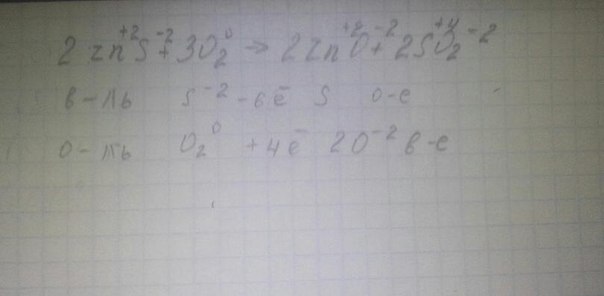 2 Zn⁺²S⁻² + 3O₂⁰ → 2Zn⁺²O⁻² + 2S⁺⁴O₂⁻²
в-ль S⁻² - 6ē S о-е
о-ль O₂⁰ + 4ē 2O⁻² в-е